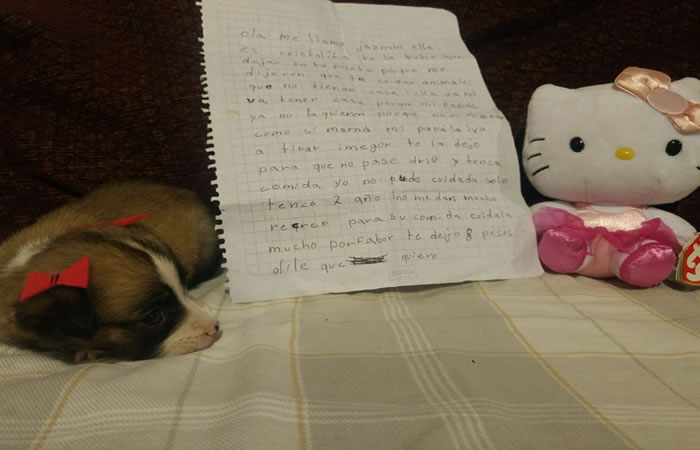 ola me llamo jazmín ella
es cristalita te la tube que
dejar en tu puerta porque me
dijeron que tu cuidas animales
que no tienen casa i ella ya no
va tener casa porque mi papás
ya no la quieren porque
como su mamá mi papá la iva
a tirar imegor te la dejo
para que no pase frio y tenca
comida yo no pude cuidarla solo
tenco 7 año ino me dan mucho
recreo para su comida cuidala
mucho porfabor te dejo 8 pesos
dile que quiero
ty